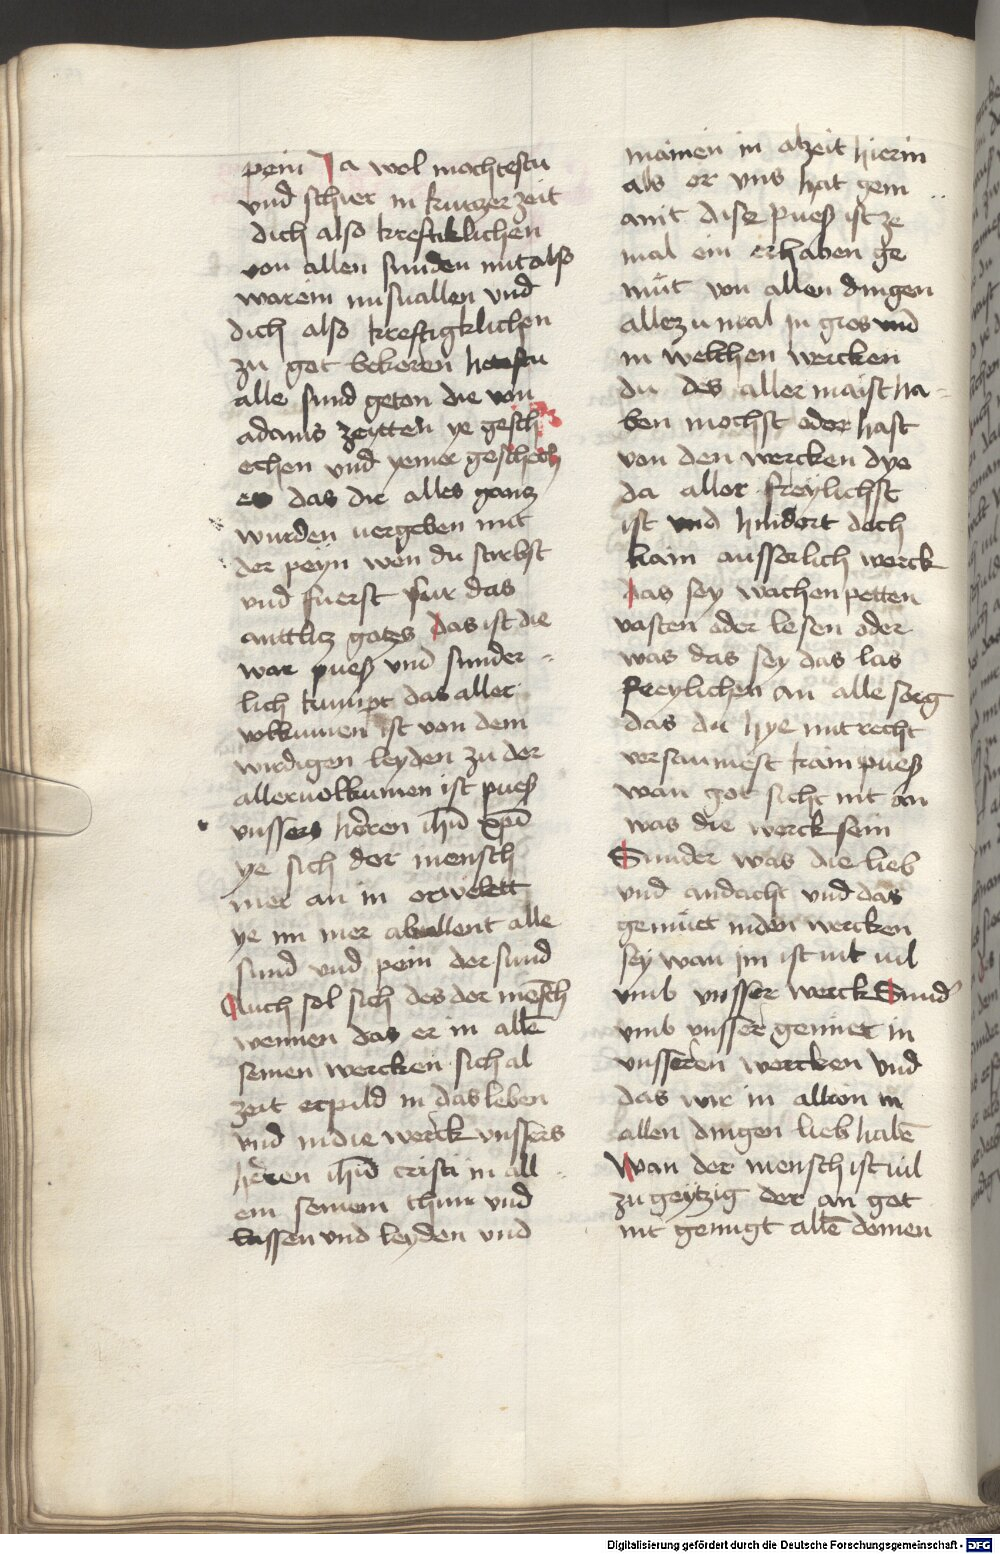 pein Ja wol mochtestu
und schier in kurczer zeit
dich also kreftiklichen
von allen sunden mit also
warem misuallen und
dich also kreftigklichen
zu got bekeren hetestu
alle sund geton die von
adams zeytten ye gesch
echen und yemer geschech
en das dir alles gancz
wurden uergeben mit
der peyn wen du sturbst
und fuerst fur das
anttlicz gotzs Das ist die
war pueß und sunder
lich kumpt das aller
uolkumen ist von dem
wirdigen leyden zu der
alleruolkumen ist pueß
unssers herren ihū xpī
ye sich der mensch
mer an in erwelett
ye im mer abuallent alle
sund und pein der sund
Auch sol sich des der mēsch
wennen das er in allē
seinen wercken sich al
zeit erpild in das leben
und in die werck unssers
herren ihū cristi in all
em seinem thun und
lassen und leyden und
mainen in alzeit hierin
als er uns hat gem
anit dise pueß ist ze
mal ein erhaben ge
müt von allen dingen
allezumal in gros und
in welchen wercken
du des aller maist ha
ben mochst oder hast
von den wercken dye
da aller freylichst
ist und hindert doch
kain ausserlich werck
das sey wachen petten
vasten oder lesen oder
was das sey das las
freylichen an alle sorg
das du hye mit recht
versaumest kain pueß
wan got sicht nit an
was die werck sein
Sunder was die lieb
und andacht und das
gemüet in den wercken
sey wan im ist nit uil
umb unsser werck Sund
umb unsser gemuet in
unsseren wercken und
das wir in allain in
allen dingen lieb habē
Wan der mensch ist uil
zu geytzig der an got
nit genugt allē deinen